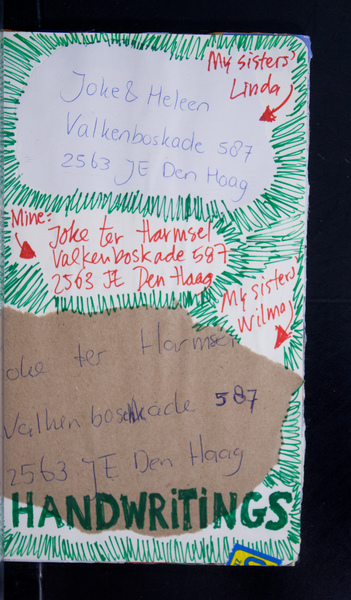 My sisters'
Linda
Joke & Heleen
Valkenboskade 587
2563 JE Den Haag
Mine:
Joke ter Harmsel
Valkenboskade 587
2563 JE Den Haag
My sisters'
Wilma
oke ter Harmsel
Valkenboskade 587
2563 JE Den Haag
HANDWRiTiNGS